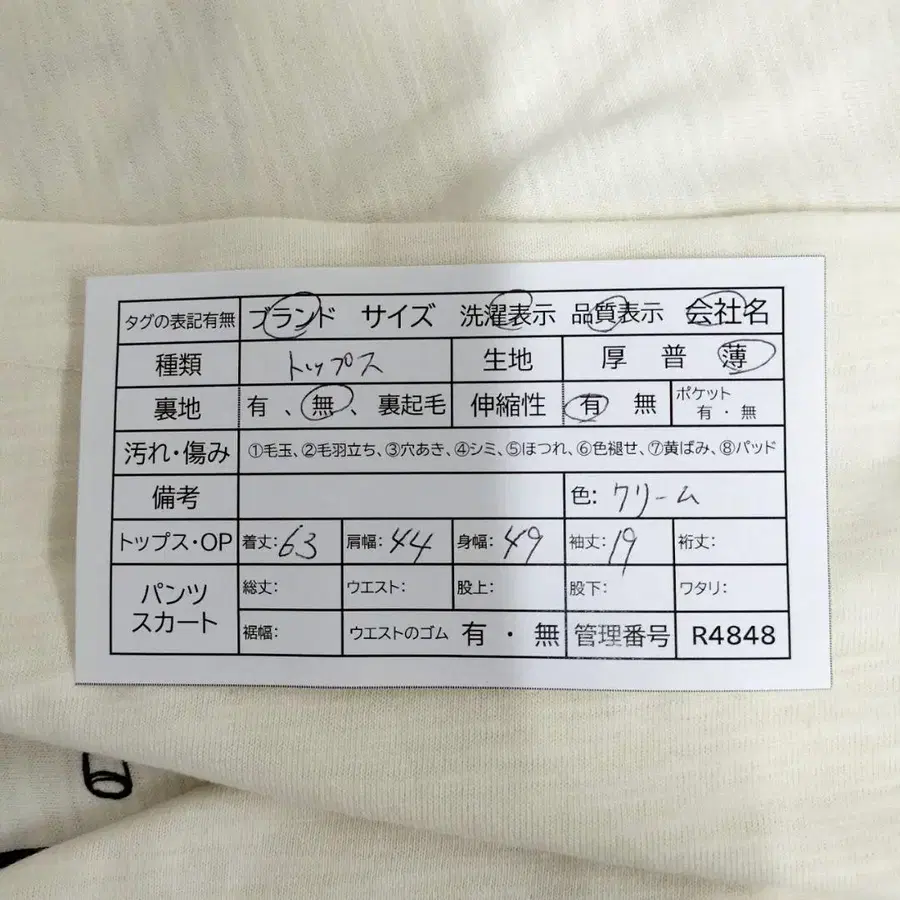 タグの表記有無 ブランド サイズ 洗濯表示 品質表示 会社名
種類 トップス 生地 厚 普 薄
裏地 有、無、裏起毛 伸縮性 有 無 ポケット 有・無
汚れ・傷み ①毛玉、②毛羽立ち、③穴あき、④シミ、⑤ほつれ、⑥色褪せ、⑦黄ばみ、⑧パッド
備考 色: クリーム
トップス・OP 着丈: 63 肩幅: 44 身幅: 49 袖丈: 19 裄丈:
パンツ スカート 総丈: ウエスト: 股上: 股下: ワタリ:
裾幅: ウエストのゴム 有・無 管理番号 R4848